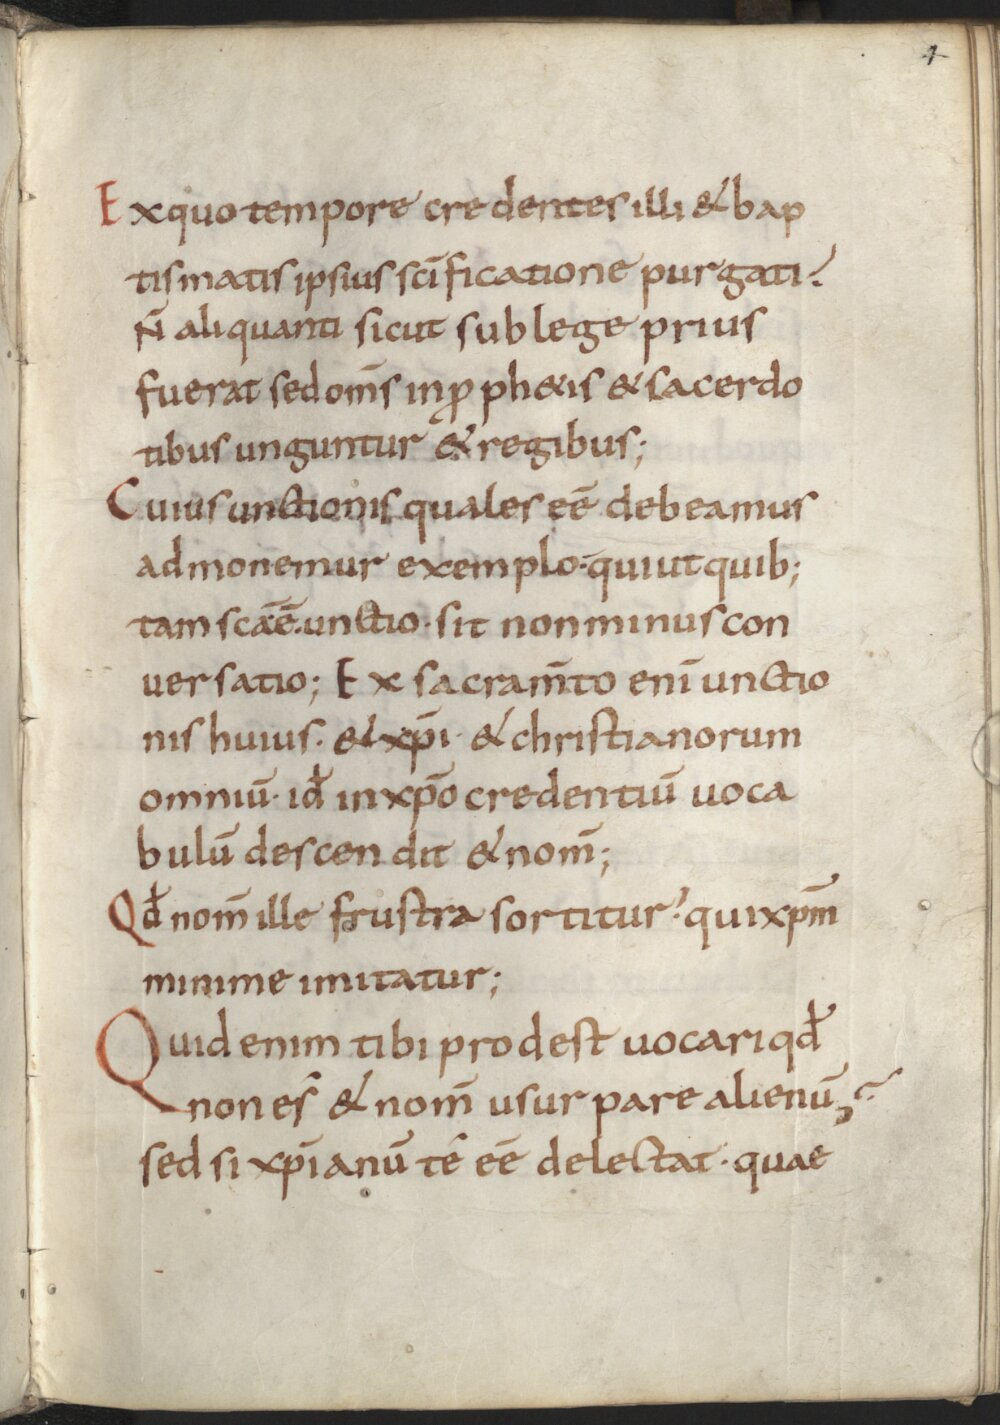 4
Ex quo tempore credentes illi & bap
tismatis ipsius sc̄ificatione purgati.
N̄ aliquanti sicut sub lege prius
fuerat sed om̄s in ꝓph&is & sacerdo
tibus unguntur & regibus;
Cuius unctionis quales eē debeamus
admonemur exemplo· qui ut quib;
tam sc̄a ē· unctio· sit non minus con
uersatio; Ex sacram̄to enī unctio
nis huius· & xp̄i· & christianorum
omniū· id̄ in xp̄o credentiū uoca
bulū descendit & nom̄;
Qd̄ nom̄ ille frustra sortitur· qui xp̄m
minime imitatur;
Quid enim tibi prodest uocari qd̄
non es̄ & nom̄ usurpare alienū;
sed si xp̄ianū tē eē delectat· quae